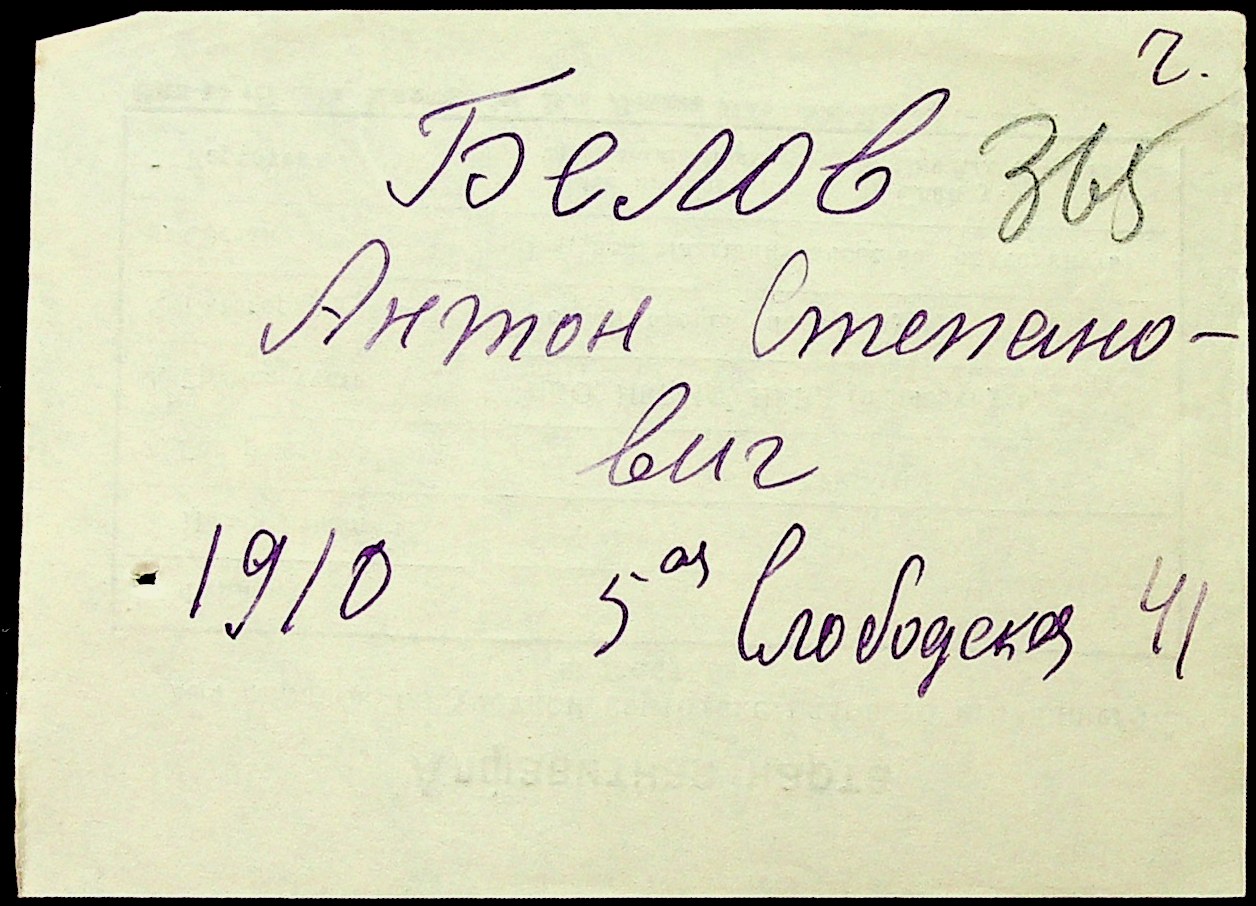 г.
Белов
Антон Степано-
вич
1910 5ая Слободская 41